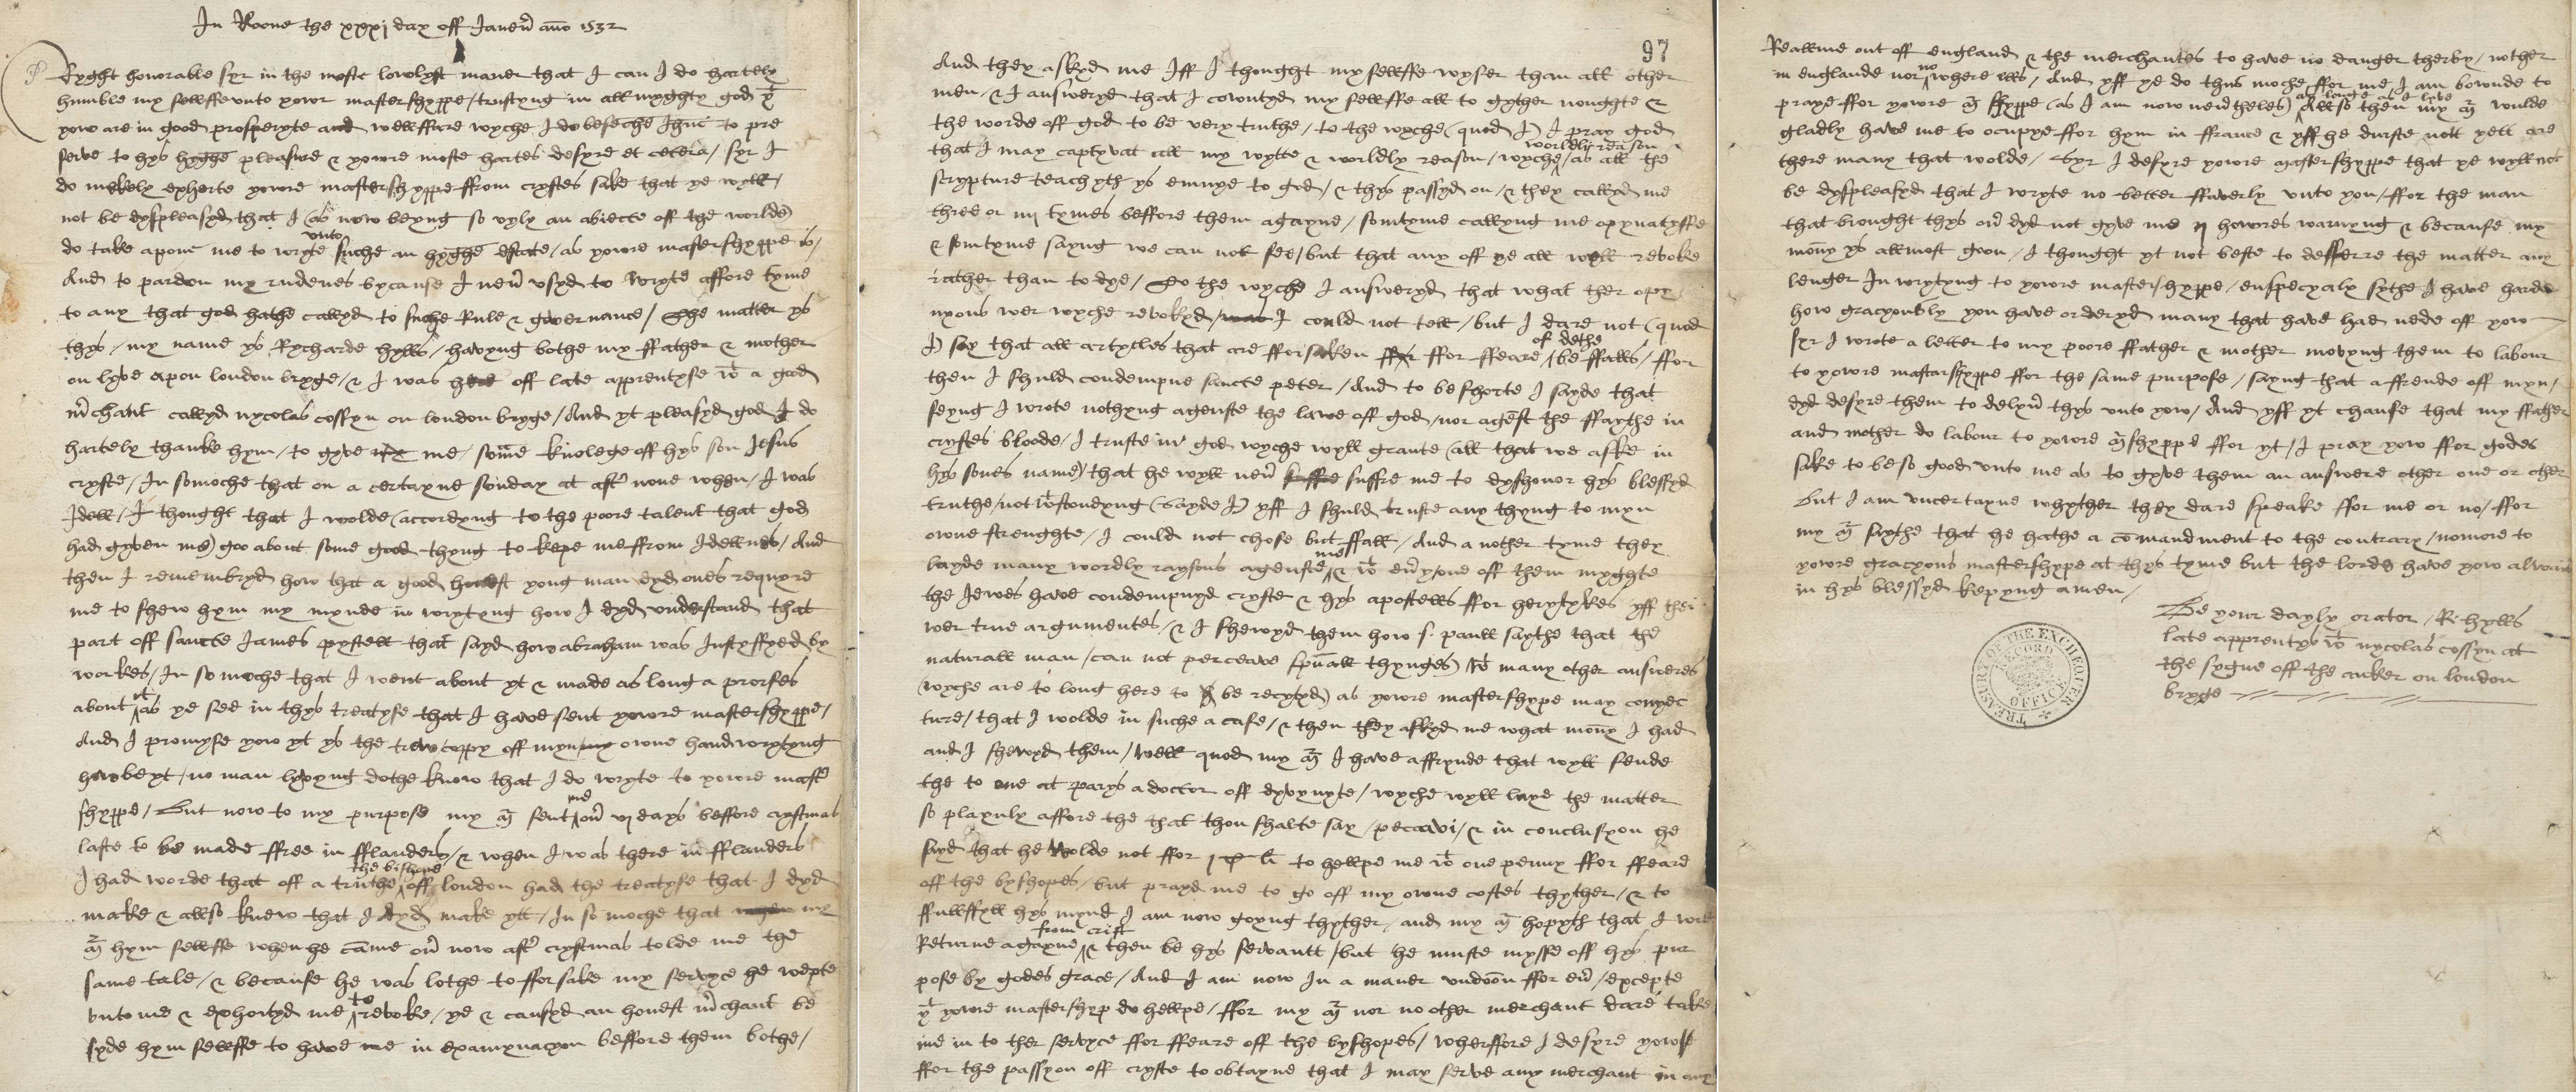 In Roone the xxxj day off Janeuer ano 1532
Ryght honorable syr in the moste lowlyst maner that I can I do hartely
humble my sellffe unto yowr mastershyppe / trustyng in allmyghty god yt
yow are in good prosperyte and wellffare wyche I do beseche Ihuc to pre
serve to hys hyghe pleasure & yowre moste hartes desyre et cetera / syr I
do mekely exhorte yowre mastershyppe ffrom crystes sake that ye wyll /
not be dyspleasyd that I (as now beyng so vyly an abiecte off the worlde)
do take apone me to wryte unto suche an hyghe estate / as yowre mastershyppe is /
And to pardon my rudenes bycause I never usyd to wryte affore tyme
to any that god hathe callyd to suche Rule & governance / The matter ys
thys / my name ys Rycharde hylls / havyng bothe my ffather & mother
on lyve apon london bryge / & I was here off late apprentyse wt a good
merchant callyd nycolas cossyn on london bryge / And yt pleasyd god I do
hartely thanke hym / to gyve me / some knolege off hys son Jesus
cryste / In somoche that on a certayne sonday at after none when / I was
Idell / I thought that I wolde (accordyng to the poore talent that god
had gyven me) goo about some good thyng to kepe me ffrom Idellnes / And
then I remembryd how that a good honest yong man dyd ones requyre
me to shew hym my mynde in wrytyng how I dyd understand that
part off sancte James pystell that sayd how abraham was Justyffyed by
workes / In so moche that I went about yt & made as long a proses
about yt as ye see in thys treatyse that I have sent yowre mastershyppe /
And I promyse yow yt ys the trew coppy off myn owne handwrytyng
howbeyt / no man lyvyng dothe know that I do wryte to yowre master
shyppe / But now to my purpose my mr sent me over vj days beffore crystmas
laste to be made ffree in fflanders / & when I was there in fflanders
I had worde that off a truthe the bishope off london had the treatyse that I dyd
make & allso knew that I dyd make ytt / In so moche that my
mr hym sellffe when he came over now after crystmas tolde me the
same tale / & because he was lothe to fforsake my servyce he wepte
unto me & exhortyd me to revoke / ye & causyd an honest merchant be
syde hym sellffe to have me in examynacyon beffore them bothe /
97
And they askyd me Iff I thought my sellffe wyser than all other
men / & I answeryd that I cowntyd my sellffe all to gyther noughte &
the worde off god to be very truthe / to the wyche (quod I) I pray god
that I may captyvat all my wytte & worldly reason / wyche worldly reason / as all the
scrypture teachyth ys enmye to god / & thys passyd on / & they callyd me
three or iiij tymes beffore them agayne / somtyme callyng me opynatyffe
& somtyme sayng we can not see / but that any off ye all wyll revoke
rather than to dye / To the wyche I answeryd that what ther opy
nyons wer wyche revokyd / I could not tell / but I dare not (quod
I) say that all artycles that are fforsaken ffor ffeare of dethe be ffalls / ffor
then I shuld condempne sancte peter / And to be shorte I sayde that
seyng I wrote nothyng agenste the lawe off god / nor agenst the ffaythe in
crystes bloode / I truste in god wyche wyll grante (all that we aske in
hys sones name) that he wyll never suffre me to dyshonor hys blessyd
truthe / not wtstondyng (sayde I) yff I shuld truste any thyng to myn
owne strenghte / I could not chose but ffall / And a nother tyme they
layde many wordly raysons agenste me & wt every one off them myghte
the Jewes have condempnyd cryste & hys apostells ffor herytykes yff thei
wer true argumentes / & I shewyd them how s. paull saythe that the
naturall man / can not perceave sprituall thynges) wt many other answeres
(wyche are to long here to be recytyd) as yowre mastershype may conyec
ture / that I wolde in suche a case / & then they askyd me what money I had
and I shewyd them / well quod my mr I have affrynde that wyll sende
the to one at parys a doctor off dyvynyte / wyche wyll laye the matter
so playnly affore the that thou shalte say / peccavi / & in conclusyon he
sayd that he wolde not ffor to hellpe me wt one penny ffor ffeare
off the byshopes / but prayd me to go off my owne costes thyther / & to
ffullffyll hys mynd I am now goyng thyther / and my mr hopyth that I wyll
Returne agayne from crist & then be hys servantt / but he muste mysse off hys pur
pose by godes grace / And I am now In a maner undoon ffor ever / excepte
yt yowre mastershyp do hellpe / ffor my mr nor no other merchent dare take
me in to ther servyce ffor ffeare off the byshopes / wherffore I desyre yowr
ffor the passyon off cryste to obtayne that I may serve any merchent in any
Reallme out off england & the merchantes to have no danger therby / nother
in englande nor no where ells / And yff ye do thus moche ffor me I am bownde to
praye ffor yowre mr shyppe (as I am now nevertheles) as longe as I live Allso then my mr wulde
gladly have me to ocupye ffor hym in ffrance & yff he durste nott yett are
there many that wolde / Syr I desyre yowre mastershyppe that ye wyll not
be dyspleasyd that I wryte no better ffaverly unto you / ffor the man
that brought thys over dyd not gyve me ij howres warnyng & because my
money ys allmost goon / I thought yt not beste to defferre the matter any
lenger In wrytyng to yowre mastershyppe / enspecyaly sythe I have harde
how gracyously you have orderyd many that have had nede off yow
syr I wrote a letter to my poore ffather & mother movyng them to labour
to yowre mastarshyppe ffor the same purpose / sayng that a ffrende off myn /
dyd desyre them to delyver thys unto yow / And yff yt chanse that my ffather
and mother do labour to yowre mrshyppe ffor yt / I pray yow ffor godes
sake to be so good unto me as to gyve them an answere other one or other
But I am uncertayne whyther they dare speake ffor me or no / ffor
my mr saythe that he hathe a comandment to the contrary / nomore to
yowre gracyous mastershype at thys tyme but the lorde have yow alway
in hys blessyd kepyng amen /
Be your dayly orator / R. hylls
late apprentys wt nycolas cossyn at
the sygne off the anker on london
bryge
TREASURY OF THE EXCHEQUER
RECORD
OFFICE